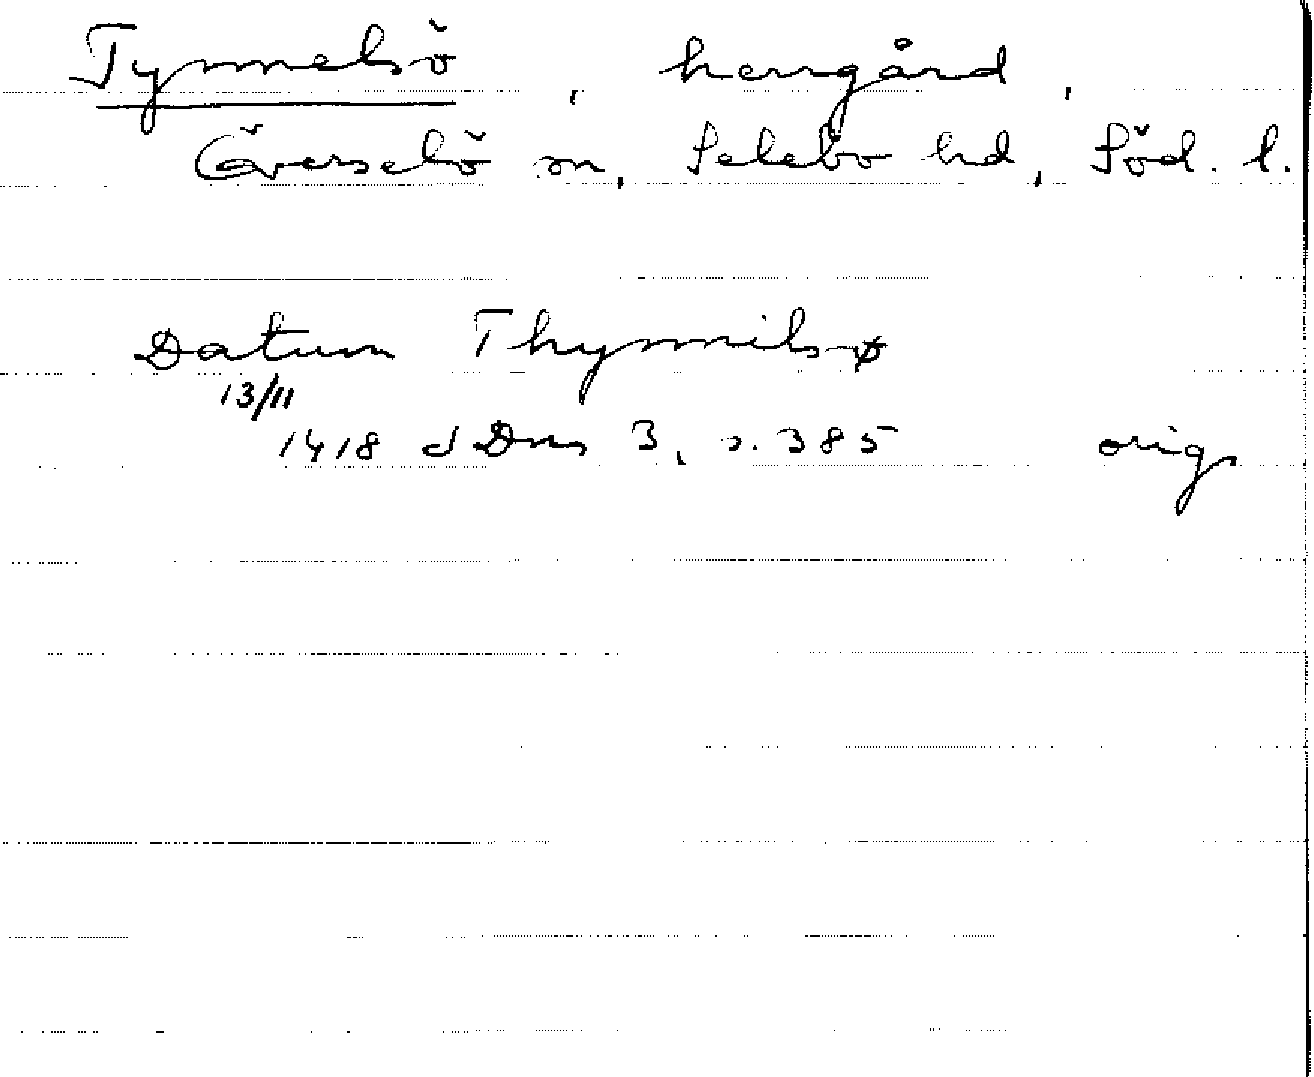 Tynnelsö, herrgård,
Överselö sn, Selebo hd, Söd. l.
Datum Thynnilsø
13/11
1418 SD Dns 3, s. 385 orig